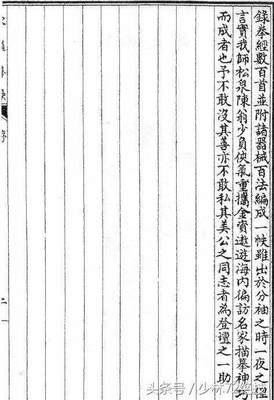 錄拳經數百首並附諸器械百法編成一帙雖出於分袖之時一夜之
言實我師松泉陳翁少負俠氣重攜金資遨遊海內徧訪名家描摹神巧
而成者也予不敢沒其善亦不敢私其美公之同志者為登壇之一助
序
二
头条号